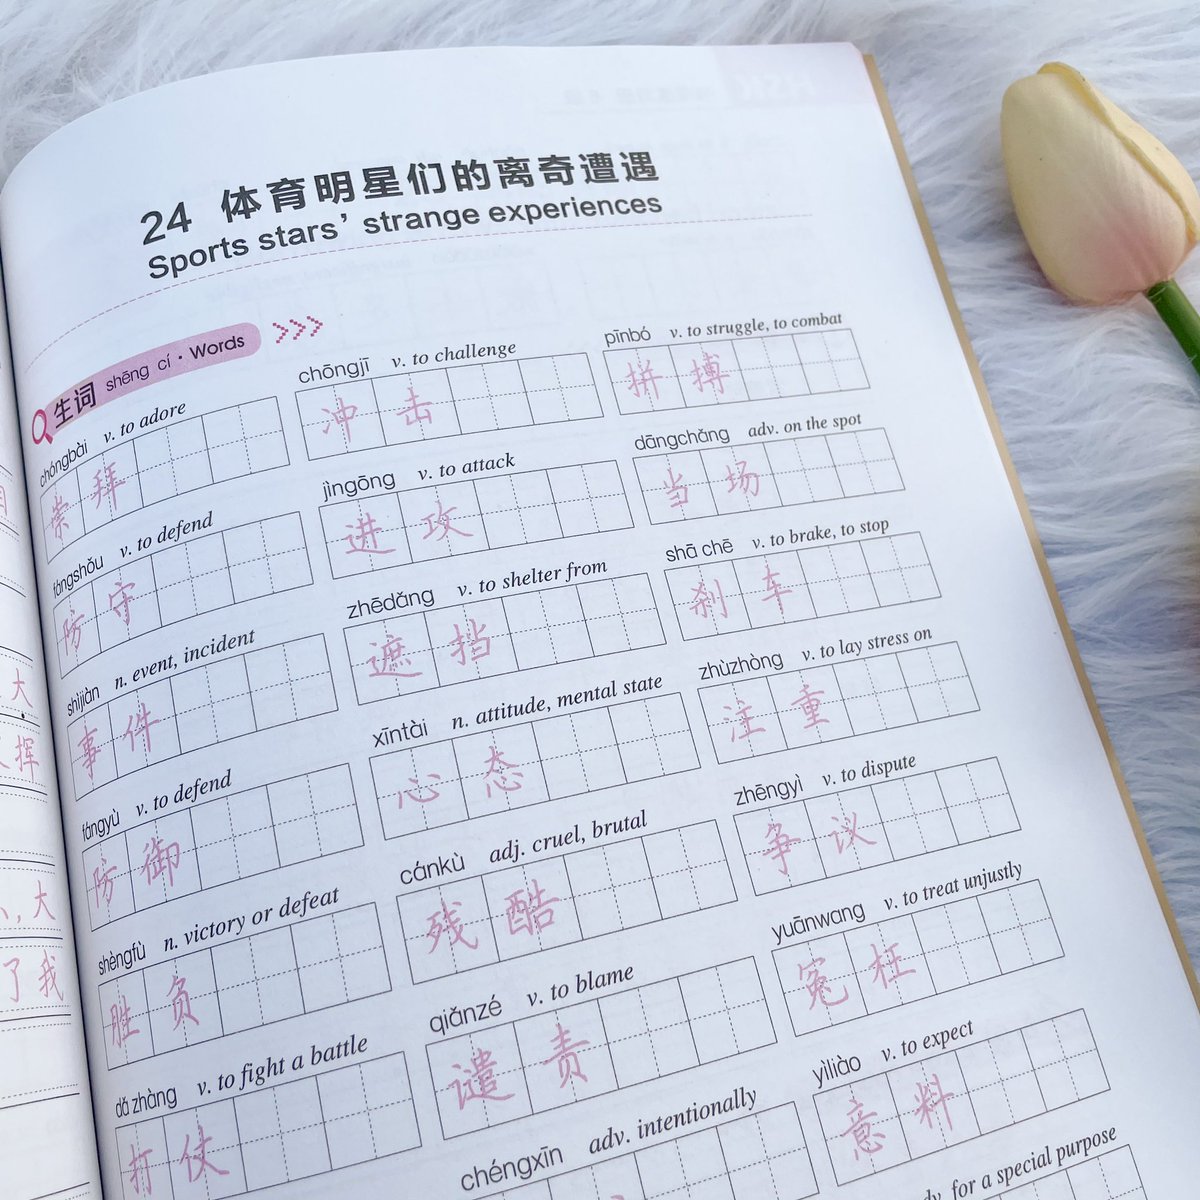 24 体育明星们的离奇遭遇
Sports stars' strange experiences
生词 shēng cí · Words
chóngbài v. to adore
崇拜
chōngjī v. to challenge
冲击
pīnbó v. to struggle, to combat
拼搏
fángshǒu v. to defend
防守
jìngōng v. to attack
进攻
dāngchǎng adv. on the spot
当场
shìjiàn n. event, incident
事件
zhēdǎng v. to shelter from
遮挡
shā chē v. to brake, to stop
刹车
fángyù v. to defend
防御
xīntài n. attitude, mental state
心态
zhùzhòng v. to lay stress on
注重
shèngfù n. victory or defeat
胜负
cánkù adj. cruel, brutal
残酷
zhēngyì v. to dispute
争议
dǎ zhàng v. to fight a battle
打仗
qiǎnzé v. to blame
谴责
yuānwang v. to treat unjustly
冤枉
chéngxīn adv. intentionally
yìliào v. to expect
意料
for a special purpose
大
挥
大
了我